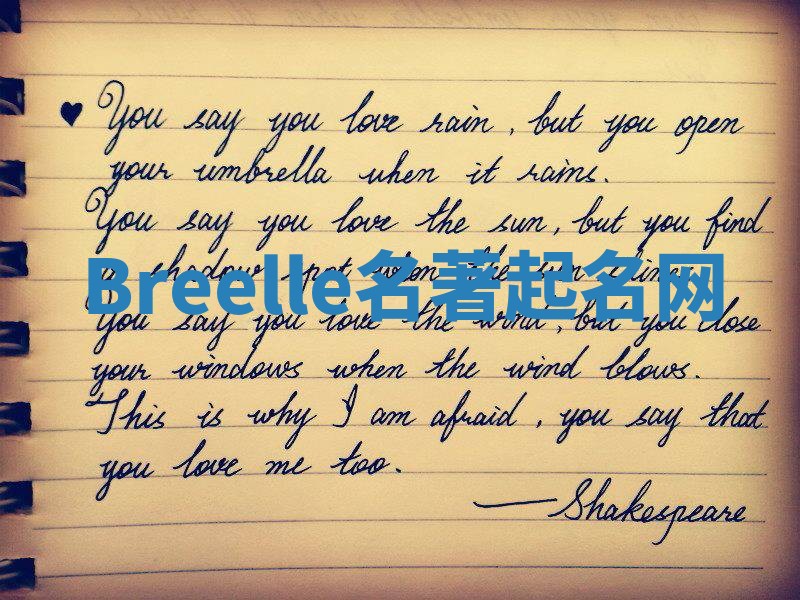 ♥ You say you love rain, but you open
your umbrella when it rains.
You say you love the sun, but you find
a shadow spot when the sun shines.
Breelle名著起名网
You say you love the wind, but you close
your windows when the wind blows.
This is why I am afraid, you say that
you love me too.
—Shakespeare